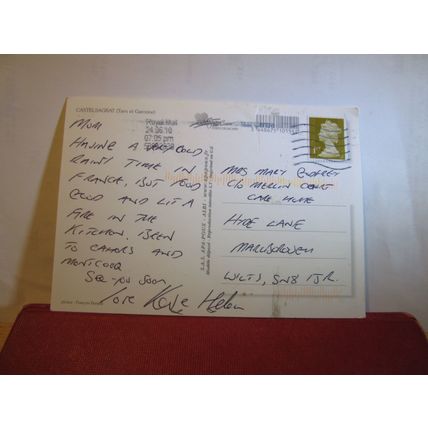 CASTELSAGRAT (Tarn et Garonne)
Royal Mail
24.06.10
07:05 pm
MUM
HAVING A VERY COLD
RAINY TIME IN
FRANCE, BUT FOOD
GOOD AND LIT A
FIRE IN THE
KITCHEN. BEEN
TO CAHORS AND
MONTCUQ
SEE YOU SOON
love Helen
MRS MARY
C/O MERLIN COURT
CARE HOME
HYDE LANE
MARLBOROUGH
WILTS, SN8